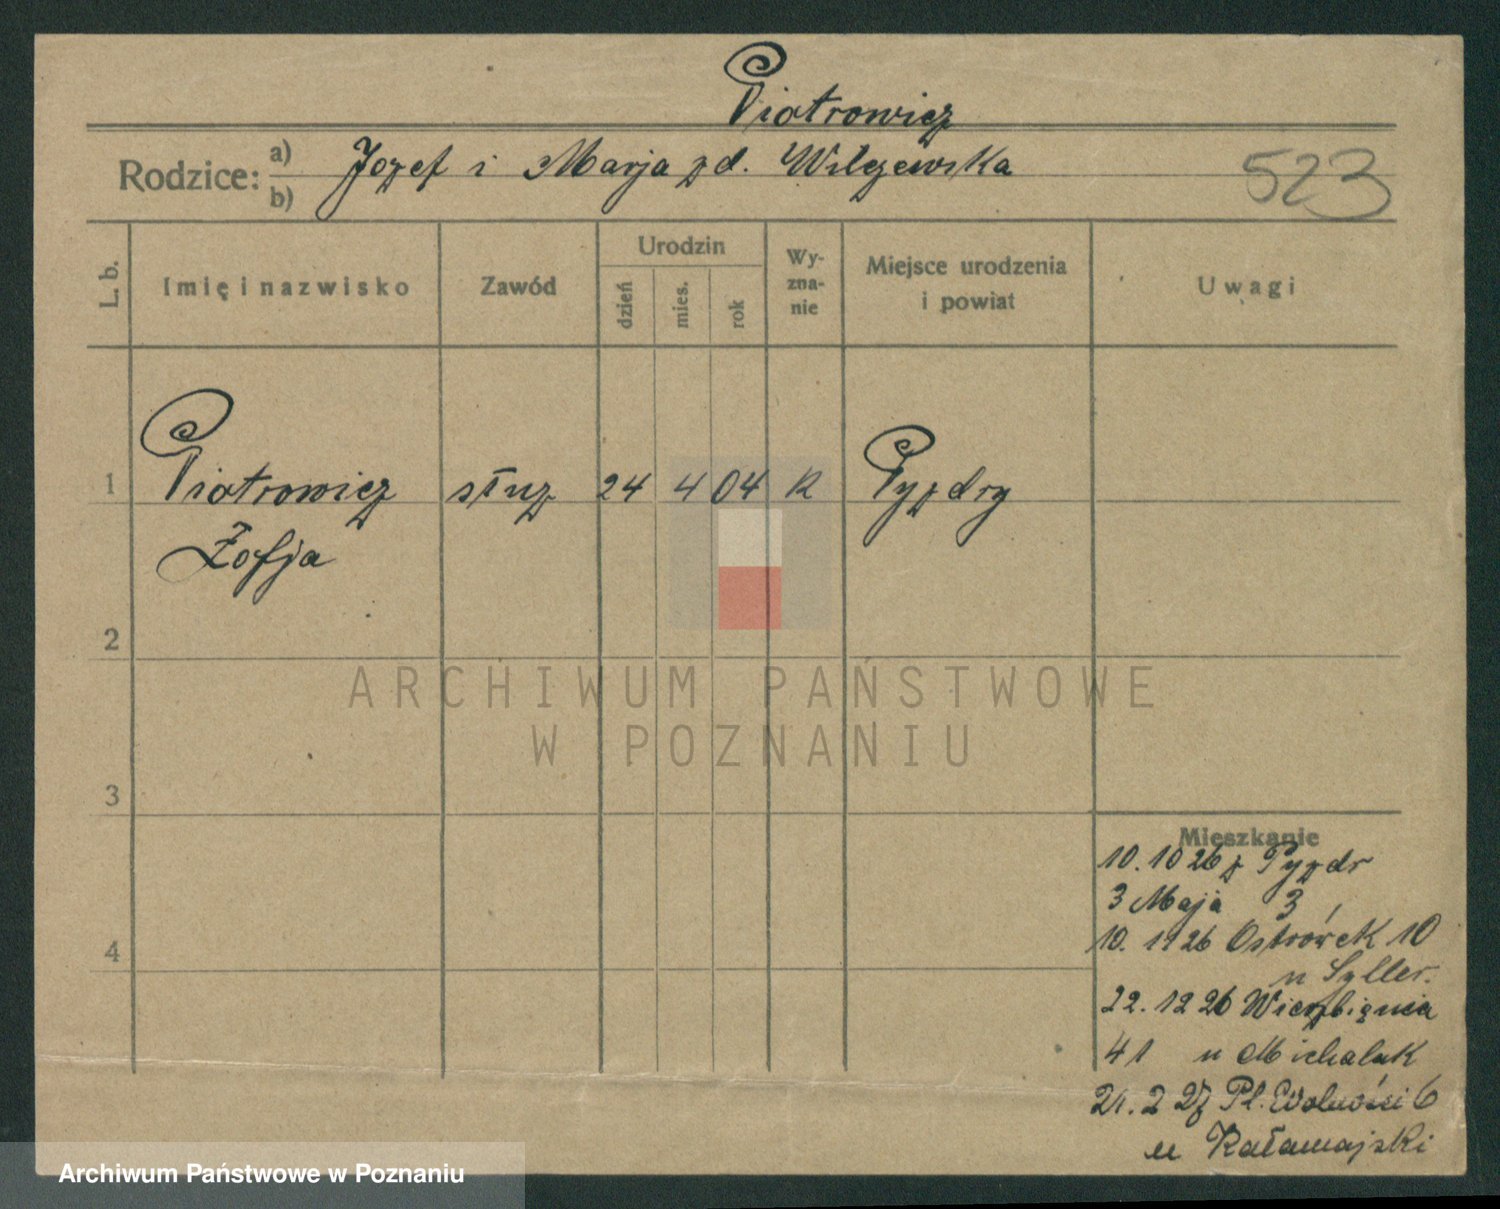 Piotrowicz
Rodzice: a) Jozef i Marja zd. Wilczewska
b)
523
L. b.
Imię i nazwisko
Zawód
Urodzin
dzień
mies.
rok
Wy-
zna-
nie
Miejsce urodzenia
i powiat
Uwagi
1 Piotrowicz służ 24 4 04 R Pyzdry
Zofja
2
3
4
Mieszkanie
10. 10 26 z Pyzdr
3 Maja 3
10. 11 26 Ostrówek 10
u Syller.
22. 12 26 Wierzbięcia
41 u Michalak
21. 2 27 Pl. Wolności 6
u Kałamajski
ARCHIWUM PAŃSTWOWE
W POZNANIU
Archiwum Państwowe w Poznaniu